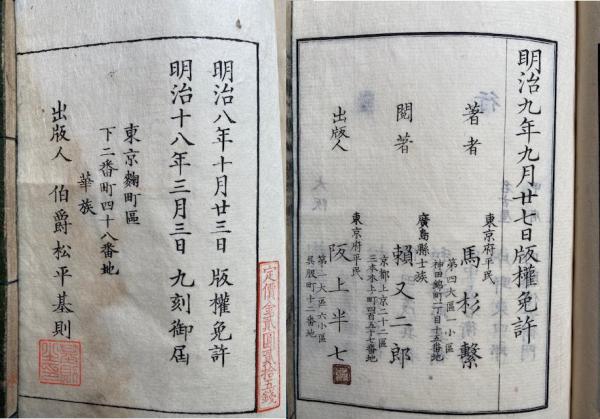 定價金貳圓貳拾五錢
明治八年十月廿三日 版權免許
明治十八年三月三日 九刻御屆
東京麴町區
下二番町四十八番地
華族
出版人 伯爵松平基則
明治九年九月廿七日版權免許
東京府平民
著者 馬杉繫
第四大區一小區
神田錦町一丁目十五番地
廣島縣士族
閱著 賴又二郎
京都上京二十二區
三本木上町四百五十七番地
東京府平民
出版人 阪上半七
第一大區六小區
吳服町十二番地